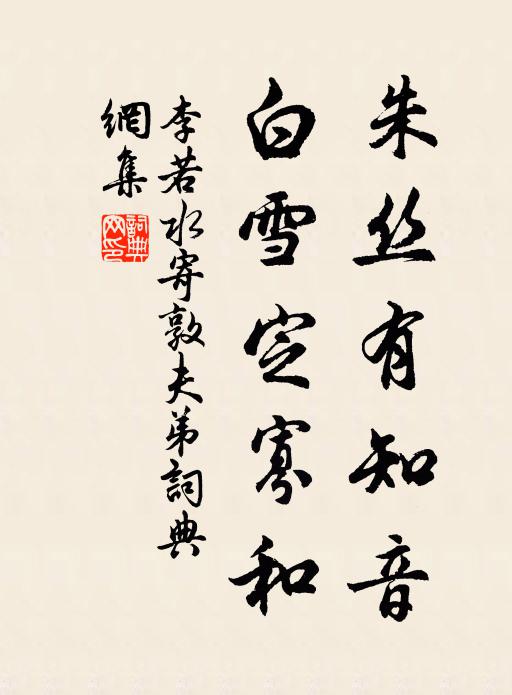 朱丝有知音
白雪定寡和
李若水寄敦夫弟詞典
網集
詞典
网印